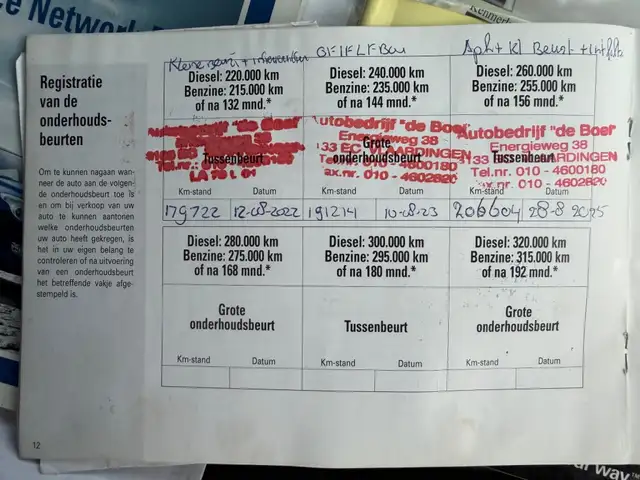 ce Network
Kennerk
Registratie
van de
onderhouds-
beurten
Om te kunnen nagaan wan-
neer de auto aan de volgen-
de onderhoudsbeurt toe is
en om bij verkoop van uw
auto te kunnen aantonen
welke onderhoudsbeurten
uw auto heeft gekregen, is
het in uw eigen belang te
controleren of na uitvoering
van een onderhoudsbeurt
het betreffende vakje afge-
stempeld is.
Diesel: 220.000 km
Benzine: 215.000 km
of na 132 mnd.*
Tussenbeurt
LA
Km-stand Datum
179722 12-08-2022
Diesel: 240.000 km
Benzine: 235.000 km
of na 144 mnd.*
Grote
onderhoudsbeurt
utobedrijf "de Boer
Energieweg 38
133 EC VLAARDINGEN
Tel.nr. 010 - 4600180
ax.nr. 010 - 4602820
Km-stand Datum
191214 10-08-23
Beurt +
Diesel: 260.000 km
Benzine: 255.000 km
of na 156 mnd.*
Tussenbeurt
utobedrijf "de Boer
Energieweg 38
133 ARDINGEN
Tel.nr. 010 - 4600180
ax.nr. 010 - 4602820
Km-stand Datum
206604 28-8-2025
Diesel: 280.000 km
Benzine: 275.000 km
of na 168 mnd.*
Grote
onderhoudsbeurt
Km-stand Datum
Diesel: 300.000 km
Benzine: 295.000 km
of na 180 mnd.*
Tussenbeurt
Km-stand Datum
Diesel: 320.000 km
Benzine: 315.000 km
of na 192 mnd.*
Grote
onderhoudsbeurt
Km-stand Datum
12
way